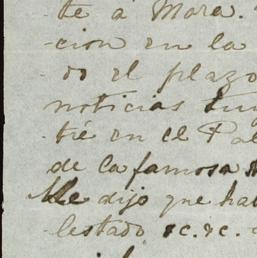 te á Mora.
-cion en la
do el plazo
noticias
tié en el Pal
de la famosa
Me dijo que ha
lestado &c. &c.